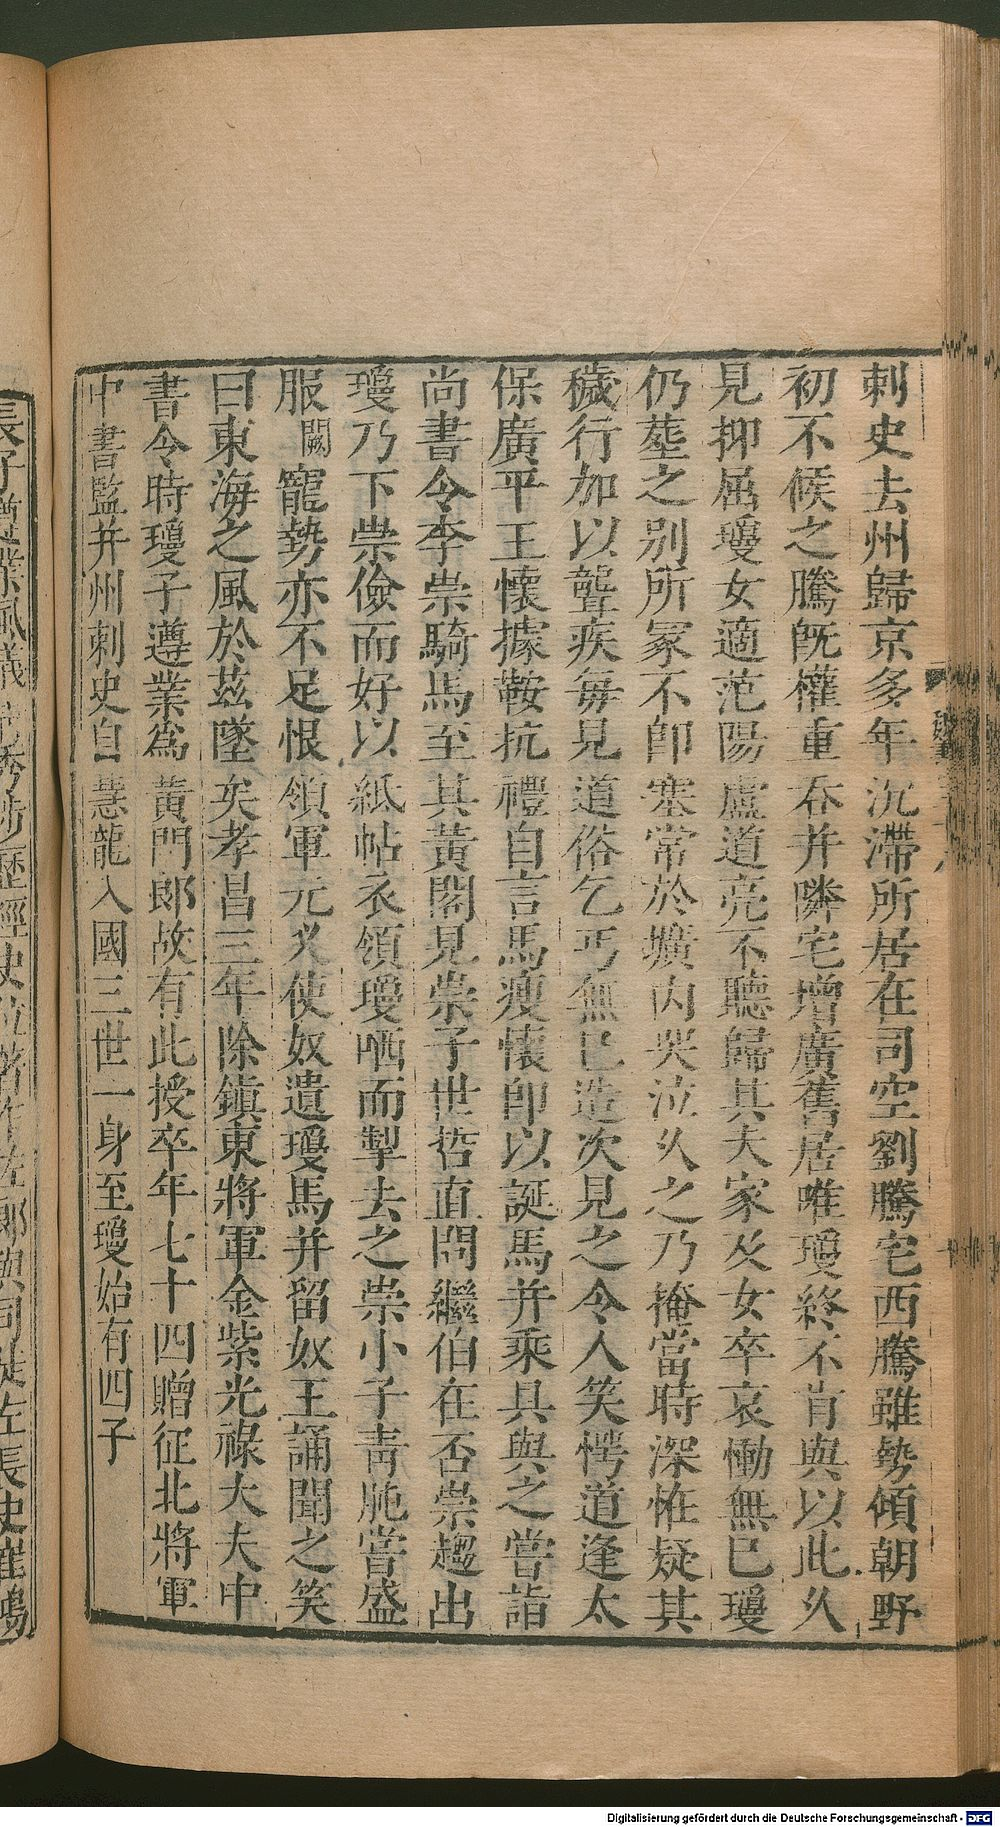 刺史去州歸京多年沉滯所居在司空劉騰宅西騰雖勢傾朝野
初不候之騰旣權重吞并隣宅增廣舊居唯瓊終不肯與以此久
見抑屈瓊女適范陽盧道亮不聽歸其夫家及女卒哀慟無已瓊
仍塟之别所冢不卽塞常於壙内哭泣久之乃掩當時深恠疑其
穢行加以聾疾每見道俗乞丐無已造次見之令人笑愕道逢太
保廣平王懷據鞍抗禮自言馬瘦懷卽以誕馬并乘具與之嘗詣
尚書令李崇騎馬至其黃閣見崇子世哲直問繼伯在否崇趨出
瓊乃下崇儉而好以紙帖衣領瓊哂而掣去之崇小子青肫嘗盛
服闕寵勢亦不足恨領軍元乂使奴遺瓊馬并留奴王誦聞之笑
曰東海之風於茲墜矣孝昌三年除鎮東將軍金紫光祿大夫中
書令時瓊子遵業爲黃門郎故有此授卒年七十四贈征北將軍
中書監并州刺史自慧龍入國三世一身至瓊始有四子
Digitalisierung gefördert durch die Deutsche Forschungsgemeinschaft - DFG